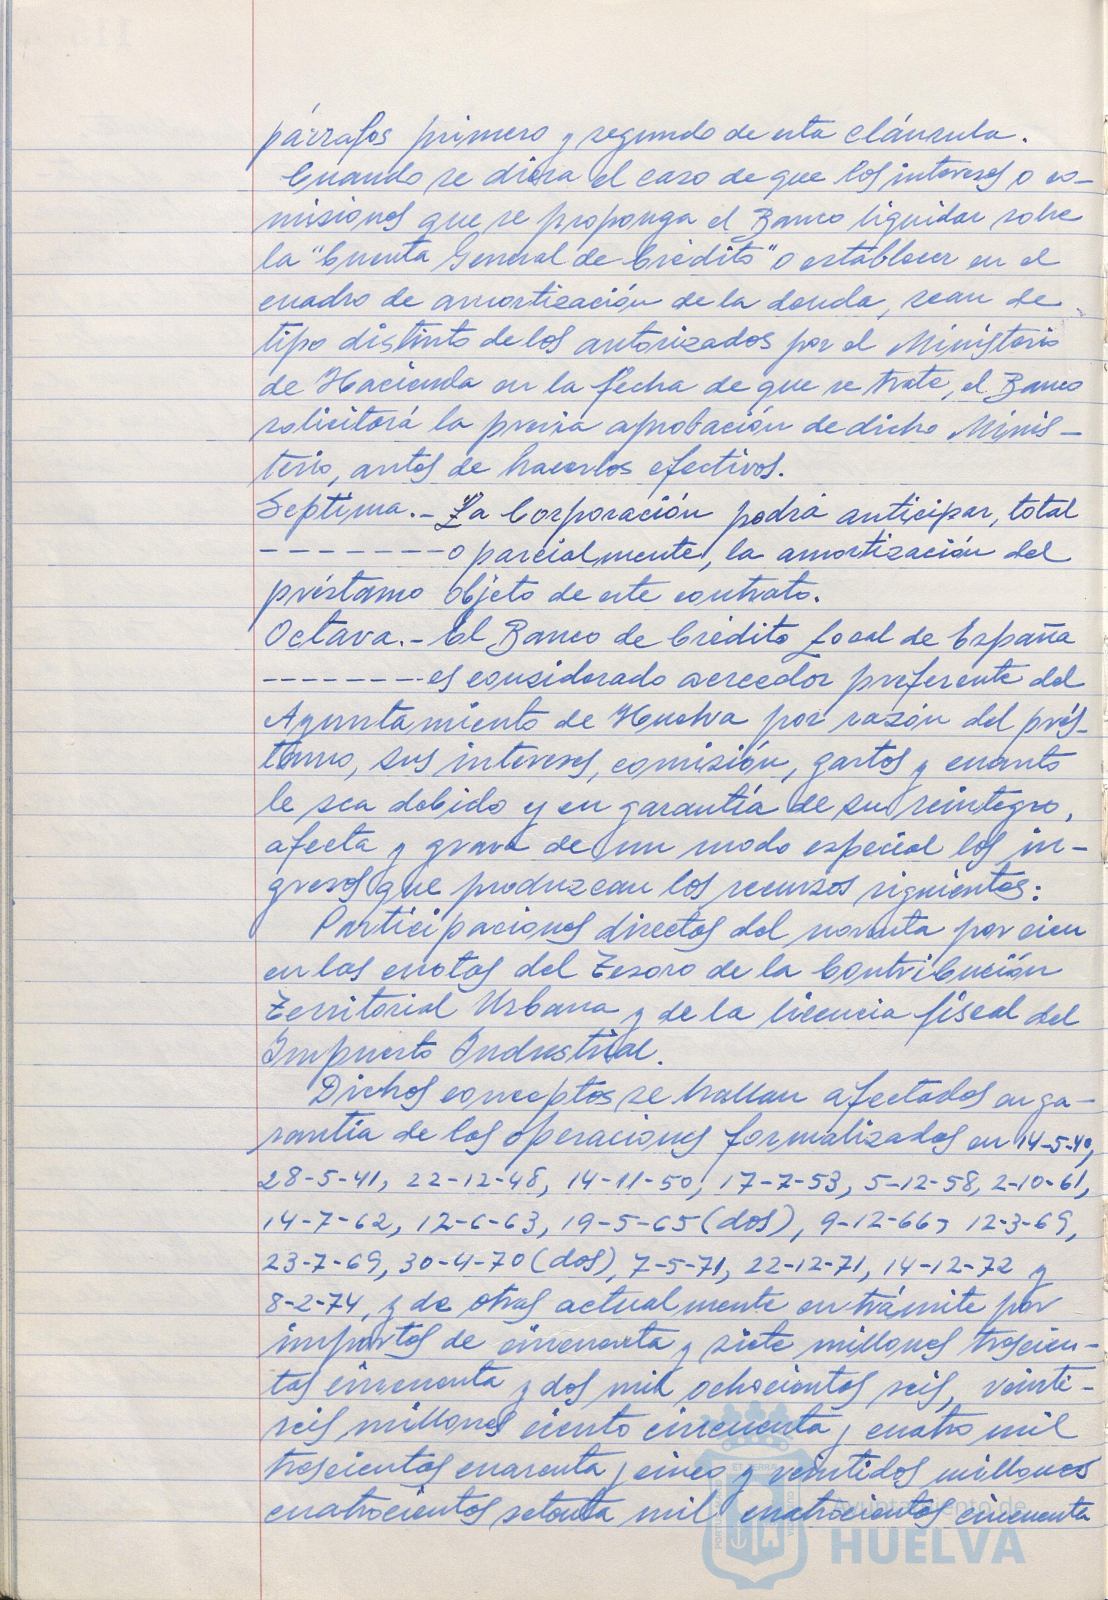 párrafos primero y segundo de esta cláusula.
Cuando se diera el caso de que los intereses o co-
misiones que se proponga el Banco liquidar sobre
la "Cuenta General de Crédito" o establecer en el
cuadro de amortización de la deuda, sean de
tipo distinto de los autorizados por el Ministerio
de Hacienda en la fecha de que se trate, el Banco
solicitará la previa aprobación de dicho Minis-
terio, antes de hacerlos efectivos.
Séptima.- La Corporación podrá anticipar, total
-------o parcialmente, la amortización del
préstamo objeto de este contrato.
Octava.- El Banco de Crédito Local de España
--------es considerado acreedor preferente del
Ayuntamiento de Huelva por razón del prés-
tamo, sus intereses, comisión, gastos y cuanto
le sea debido y en garantía de su reintegro,
afecta y grava de un modo especial los in-
gresos que produzcan los recursos siguientes:
Participaciones directas del noventa por cien
en las cuotas del Tesoro de la Contribución
Territorial Urbana y de la licencia fiscal del
Impuesto Industrial.
Dichos conceptos se hallan afectados en ga-
rantía de las operaciones formalizadas en 14-5-40,
28-5-41, 22-12-48, 14-11-50, 17-7-53, 5-12-58, 2-10-61,
14-7-62, 12-6-63, 19-5-65 (dos), 9-12-66, 12-3-69,
23-7-69, 30-4-70 (dos), 7-5-71, 22-12-71, 14-12-72 y
8-2-74, y de otras actualmente en trámite por
importes de cincuenta y siete millones trescien-
tas cincuenta y dos mil ochocientas seis, veinti-
seis millones ciento cincuenta y cuatro mil
trescientas cuarenta y cinco y veintidos millones
cuatrocientas setenta mil cuatrocientas cincuenta
Ayuntamiento de
HUELVA